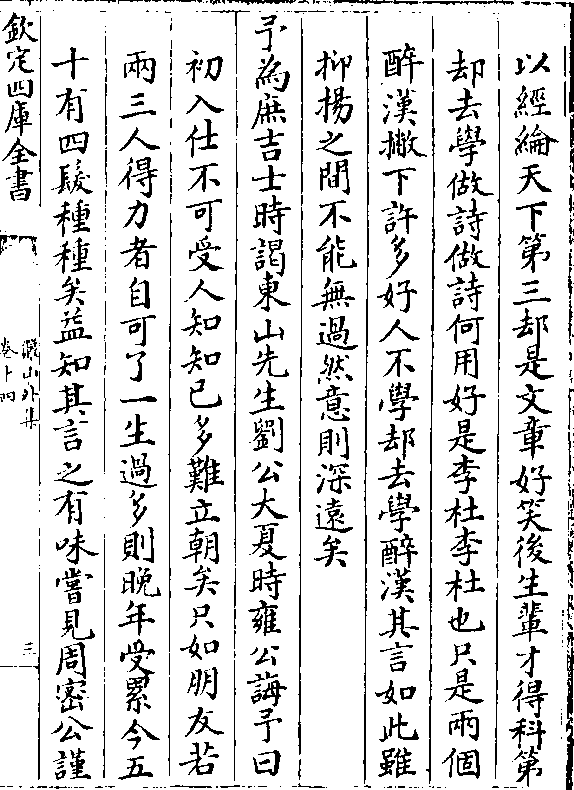 以經綸天下第三却是文章好笑後生輩才得科第
却去學做詩做詩何用好是李杜李杜也只是兩個
醉漢撇下許多好人不學却去學醉漢其言如此雖
抑揚之間不能無過然意則深遠矣
予為庶吉士時謁東山先生劉公大夏時雍公誨予曰
初入仕不可受人知知已多難立朝矣只如朋友若
兩三人得力者自可了一生過多則晚年受累今五
十有四髮種種矣益知其言之有味嘗見周密公謹
欽定四庫全書
儼山外集
卷十四
三